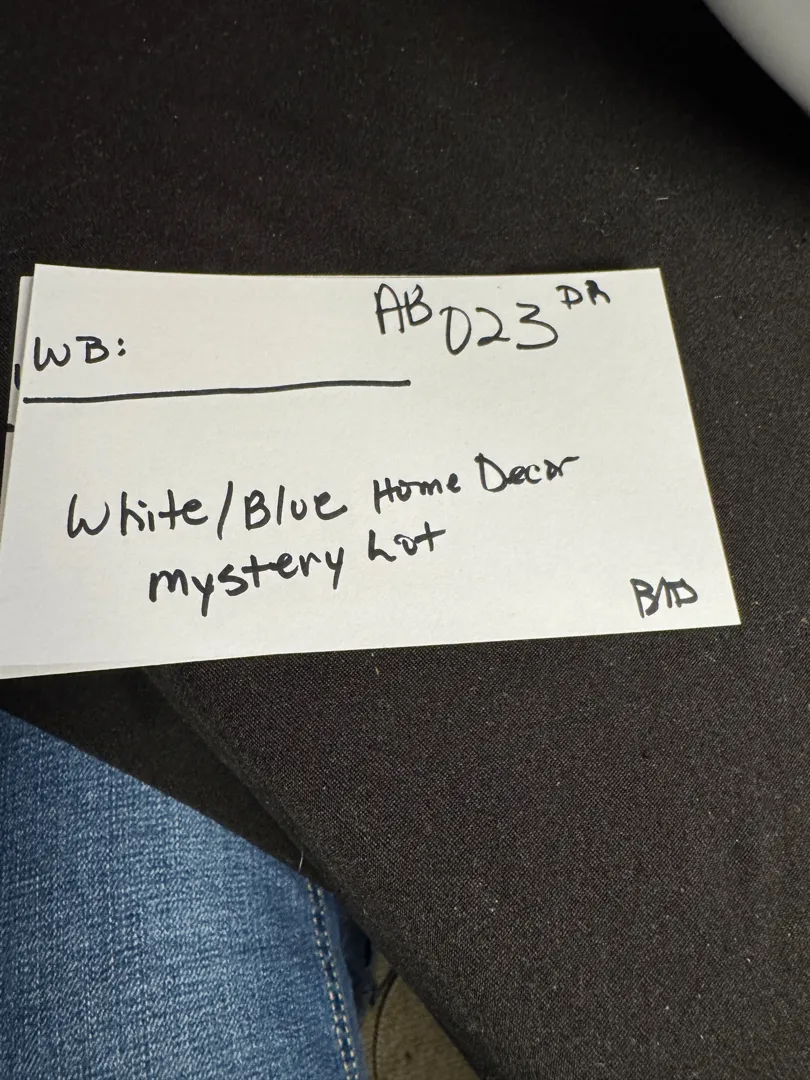 AB 023 DR
WB:
White/Blue Home Decor
Mystery Lot